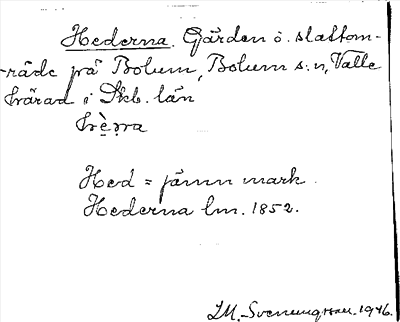 Hederna. Gärden o. slåttom-
-råde på Bolum, Bolum s:n, Valle
härad i Skb. län
hè̤rṇa
Hed = jämn mark.
Hederna lm. 1852.
I.M. Svenungsson. 1946.